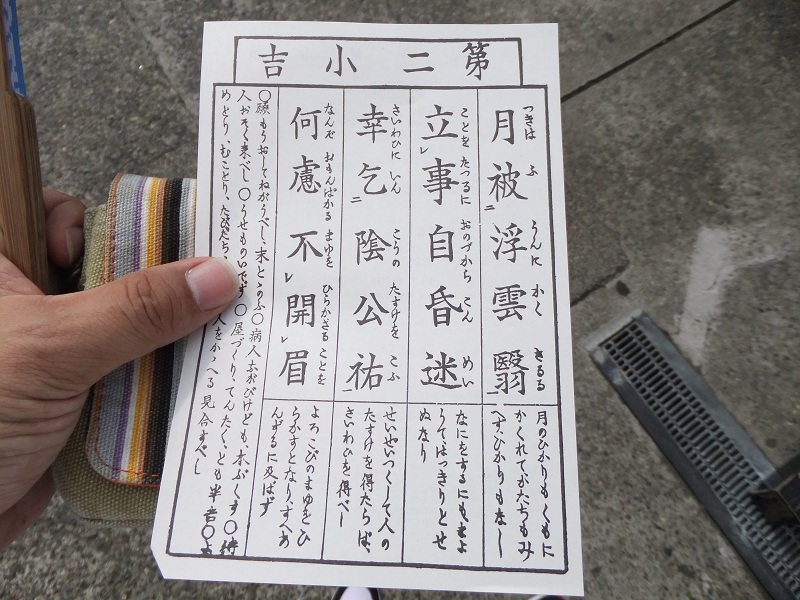 第二小吉
月被二浮雲翳一
つきは ふ うんに かく さるる
月のひかりもくもに
かくれてかたちもみ
へずひかりもなし
立レ事自昏迷
ことを たつるに おのづから こん めい
なにをするにもまよ
うてはっきりとせ
ぬなり
幸乞二陰公祐一
さいわひに いん こうの たすけを こふ
せいぜいつくして人の
たすけを得たらば、
さいわひを得べし
何慮不レ開レ眉
なんぞ おもんぱかる まゆを ひらかざる ことを
よろこびのまゆをひ
らかすとなり、すへあ
んずるに及ばず
〇願もうおしてねがうべし、末ととのふ〇病人ながびけども、本ぶくす〇待
人おそく来べし〇うせものいでず〇屋づくり、てんたくとも半吉〇よ
めとり、むことり、たびだち 人をかゝへる見合すべし